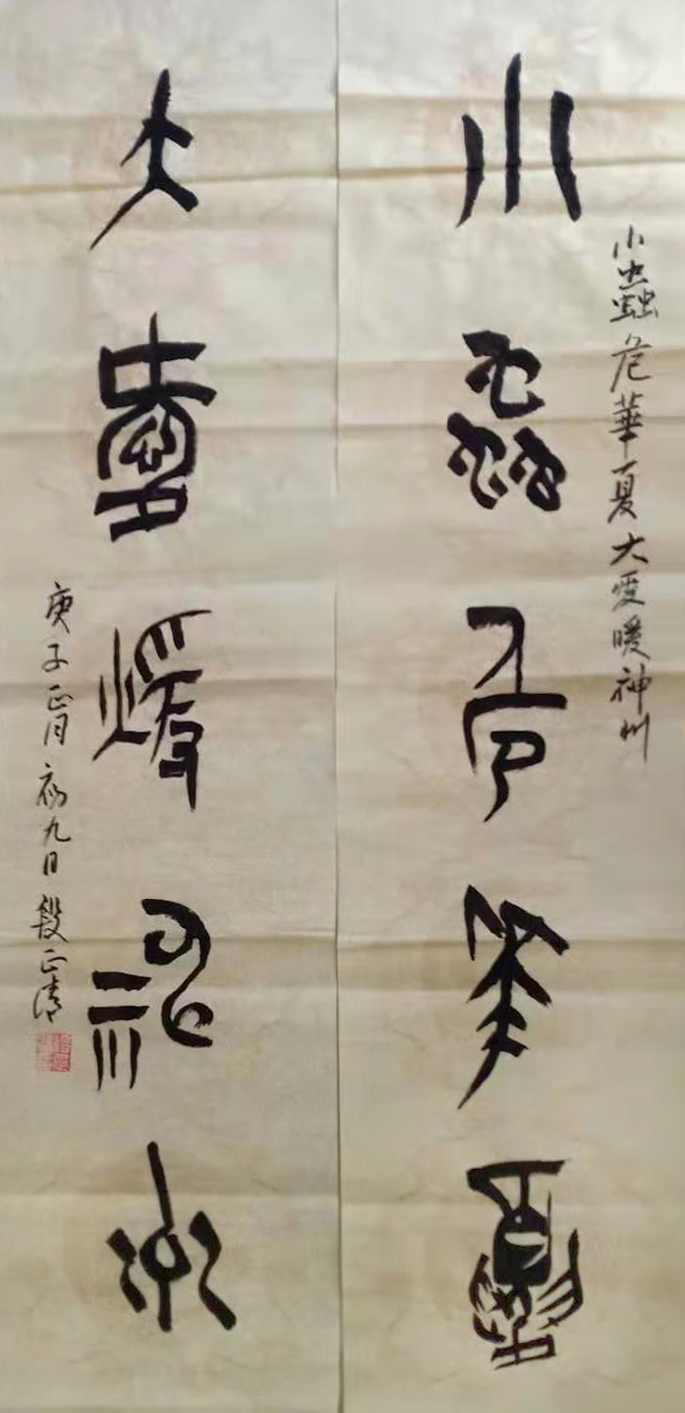 小蟲危華夏大愛暖神州
小蟲危華夏
大愛暖神州
庚子正月初九日段正清